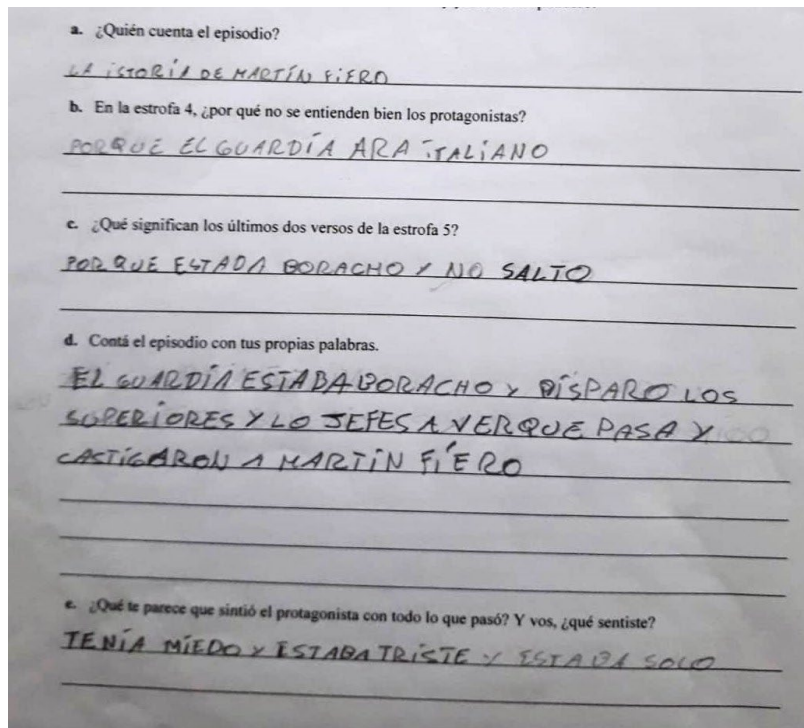 a. ¿Quién cuenta el episodio?
LA iSTORíA DE MARTÍN FiERO
b. En la estrofa 4, ¿por qué no se entienden bien los protagonistas?
PORQUE EL GUARDÍA ARA iTALiANO
c. ¿Qué significan los últimos dos versos de la estrofa 5?
POR QUE ESTADA BORACHO Y NO SALTO
d. Contá el episodio con tus propias palabras.
EL GUARDÍA ESTABA BORACHO Y DÍSPARO LOS
SUPERIORES Y LO JEFES A VER QUE PASA Y
CASTIGARON A MARTÍN FÍERO
e. ¿Qué te parece que sintió el protagonista con todo lo que pasó? Y vos, ¿qué sentiste?
TENÍA MÍEDO Y ESTABA TRÍSTE Y ESTABA SOLO